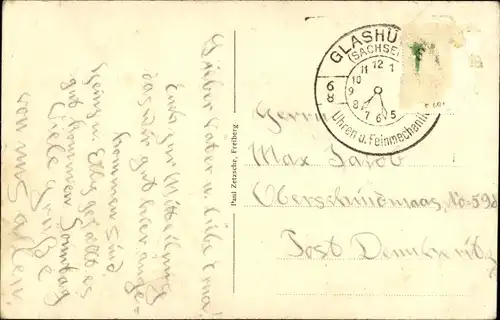 Lieber Vater u. liebe Erna!
Euch zur Mitteilung
das wir gut hier ange-
kommen sind
Heinz u. Elly gefällt es
gut kommen Sonntag
Viele Grüße
von uns allen.
Paul Zetzsche, Freiberg.
GLASHÜ
(SACHSE
11 12 1
10
9
8 7 6 5
6
8
Uhren u. Feinmechanik
Herrn
Max Jacob
Oberschindmaas, No 59d
Post Dennheritz